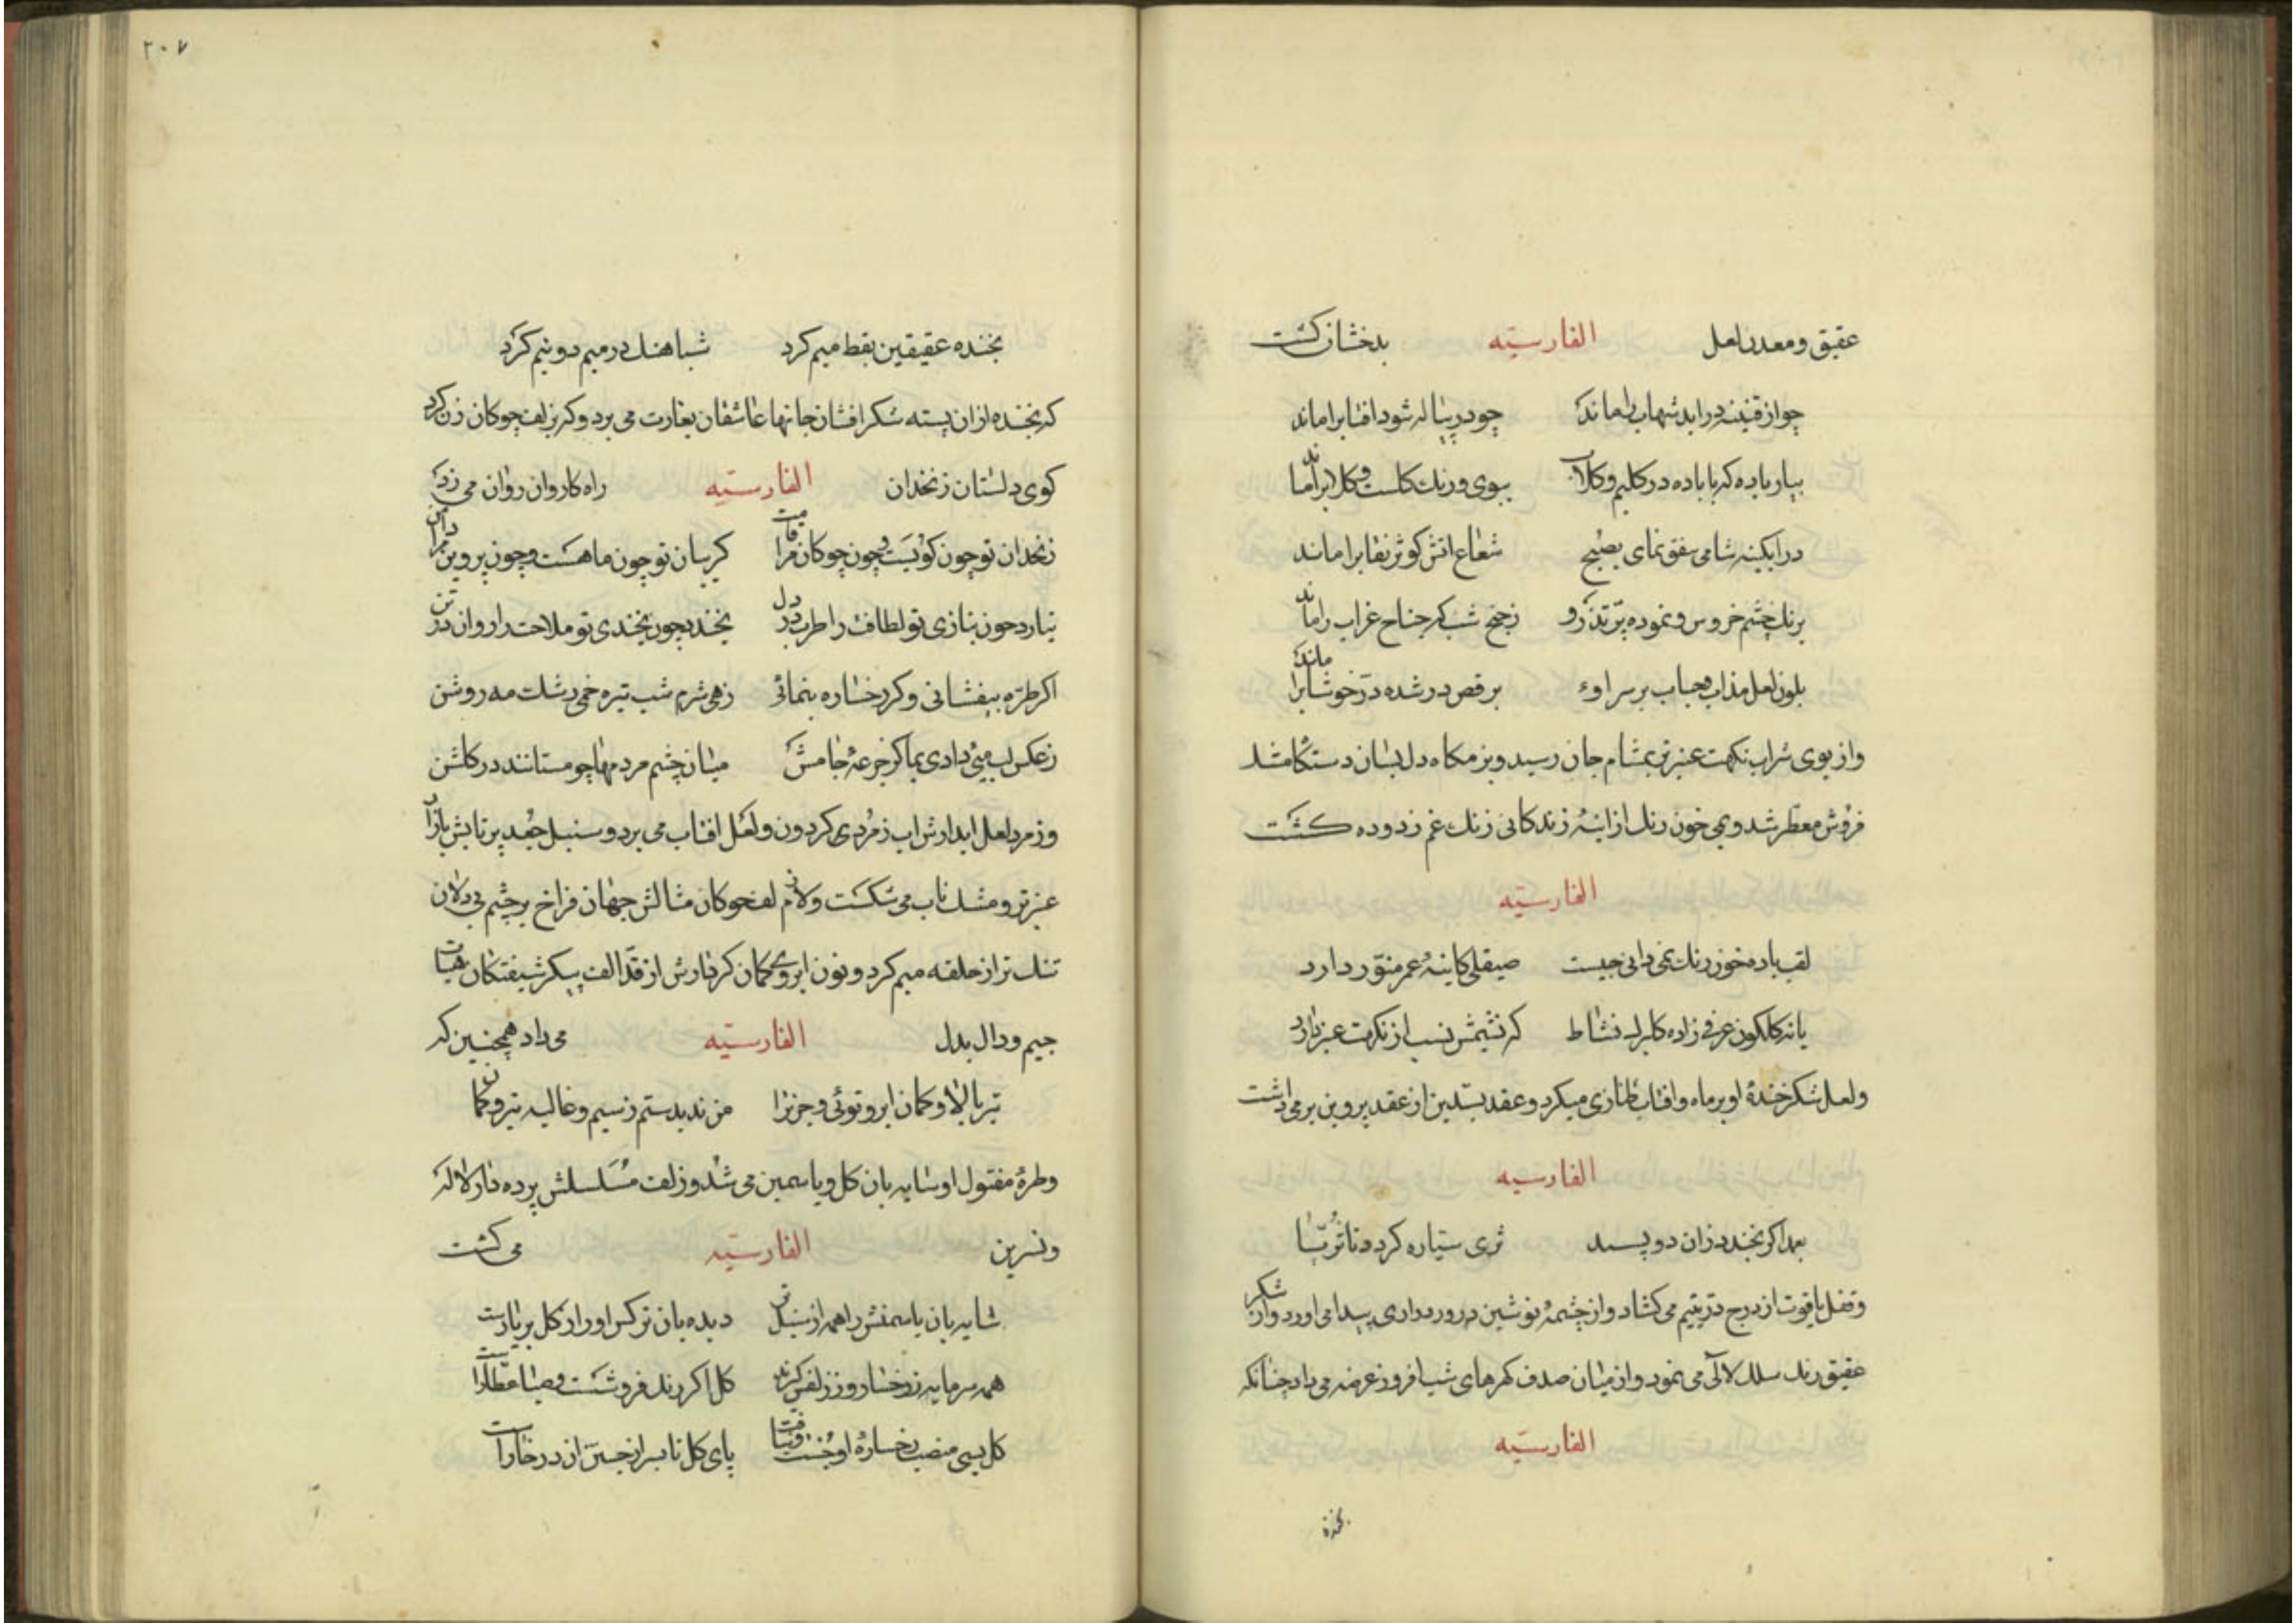 عقیق و معدن لعل الفارسیّه بدخشان کشت
چو از قنینه درآید شهاب را ماند چو در پیاله شود افتابرا ماند
بیار باده که با باده در کلیم و کلاب ببوی و رنك کلست و کلابرا ماند
در ابکینه شامی شفق نمای بصبح شعاع اتش کوثر نقابرا ماند
برنك چشم خروس و نموده پرّ تذرو ز جنح شب که جناح غراب را ماند
بلون لعل مذاب و حباب بر سر او برقص در شده درّ خوشابرا ماند
و از بوی شراب نکهت عنبر تر بمشام جان رسید و بزمکاه دل بسان دستکاه مشك
فروش معطّر شد و بمی خون رنك از اینهٔ زندکانی زنك غم زدوده کشت
الفارسیّه
لقب باده خون رنك نمی دانی چیست صیقلی کاینهٔ عمر منوّر دارد
یا نه کلکون عرق زاده کلبرك نشاط که نسیمش نسب از نکهت عنبر دارد
و لعل شکر خندهٔ او بر ماه و افتاب طنازی میکرد و عقد بسّدین از عقد پروین بر می داشت
الفارسیه
بعمدا کر بخندد زان دو بسد ثری ستیاره کردد تا ثریّا
و قفل یاقوت از درج درّ یتیم می کشاد و از چشمهٔ نوشین در و مرواری پیدا می اورد و از شکر
عقیق رنك سلك لآلی می نمود و از میان صدف کهرهای شب افروز عرضه می داد چنانکه
الفارسیّه
بخنده
۲۰۷
بخنده عقیقین نقط میم کرد شباهنك در میم دو نیم کرد
که بخنده از ان پسته شکر افشان جانها عاشقان بغارت می برد و که بزلف چوکان زن کرد
کوی دلستان زنخدان الفارسیّه راه کاروان روان می زد که
زنخدان تو چون کویست و چون چوکان مرا قامت کریبان تو چون ماهست و چون پروین مرا دامن
نیارد چون بنازی تو لطافت را طرب در دل بخندد چون بخندی تو ملاحت را روان در تن
اکر طرّه بیفشانی و کر رخساره بنمائی زهی شرم شب تیره خهی رشك مه روشن
ز عکس لب میی دادی بما کز جرعهٔ جامش میان چشم مردمها چو مستانند در کلشن
و زمرد لعل ابدارش اب زمردی کردون و لعل افتاب می برد و سنبل جعد پر تابش بازار
عنبر تر و مشك ناب می شکست و لام زلف چوکان مثالش جهان فراخ بر چشم بی دلان
تنك تر از حلقه میم کرد و نون ابروی کمان کردارش از قدّ الف پیکر شیفتکان هیات
جیم و دال بدل الفارسیّه می داد همچنین که
تیر بالا و کمان ابرو توئی و جز ترا من ندیدستم ز سیم و غالیه تیر و کمان
و طرهٔ مفتول او سایه بان کل و یاسمین می شد و زلف مسلسلش پرده دار لاله
و نسرین الفارسیّه می کشت
سایه بان یاسمنش را همه از سنبل تر دیده بان نرکس او را ز کل بربارست
همه سرمایه ز رخسار و ز زلفش کیرند کل اکر رنك فروشست و صبا عطّارست
کل بسی منصب رخسارهٔ او جست و نیافت پای کل تا بسر از حسرت ان در خارست